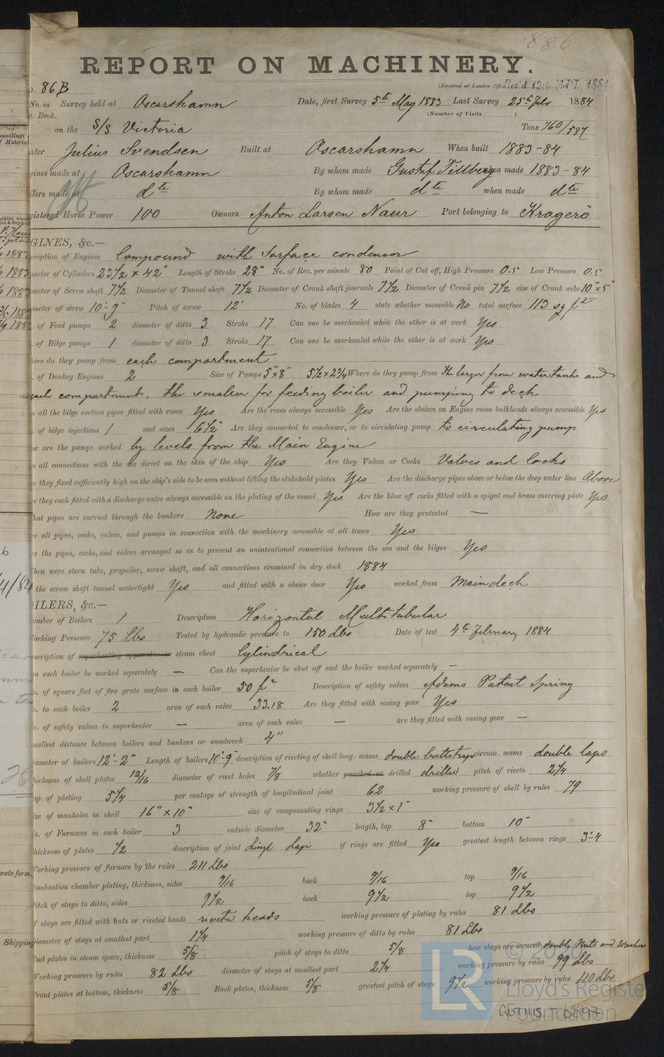 886
REPORT ON MACHINERY.
86B (Received at London Office Rec'd 12th APL 1884
No. in Survey held at Oscarshamn Date, first Survey 5th May 1883 Last Survey 25th Feb 1884
Book. (Number of Visits )
on the S/S Victoria Tons 760/587
Julius Svendsen Built at Oscarshamn When built 1883-84
made at Oscarshamn By whom made Gustaf Tillberg when made 1883-84
made at dto By whom made dto when made dto
Horse Power 100 Owners Anton Larsen Naur Port belonging to Kragerö
GINES, &c.—
cription of Engines Compound with Surface condensor
meter of Cylinders 23½ × 42" Length of Stroke 28" No. of Rev. per minute 80 Point of Cut off, High Pressure 0.5 Low Pressure 0.5
meter of Screw shaft 7½ Diameter of Tunnel shaft 7½ Diameter of Crank shaft journals 7½ Diameter of Crank pin 7½ size of Crank webs 10"×5"
meter of screw 10'-9" Pitch of screw 12' No. of blades 4 state whether moveable No total surface 113 sq ft
of Feed pumps 2 diameter of ditto 3 Stroke 17 Can one be overhauled while the other is at work Yes
of Bilge pumps 1 diameter of ditto 3 Stroke 17 Can one be overhauled while the other is at work Yes
ere do they pump from each compartment
of Donkey Engines 2 Size of Pumps 5"×8" 5½×2¾ Where do they pump from The larger from watertanks and
each compartment, the smaller for feeding boiler and pumping to deck
all the bilge suction pipes fitted with roses Yes Are the roses always accessible Yes Are the sluices on Engine room bulkheads always accessible Yes
of bilge injections 1 and sizes 6½" Are they connected to condenser, or to circulating pump to circulating pump
ow are the pumps worked by levels from the Main Engine
all connections with the sea direct on the skin of the ship Yes Are they Valves or Cocks Valves and Cocks
they fixed sufficiently high on the ship's side to be seen without lifting the stokehold plates Yes Are the discharge pipes above or below the deep water line Above
they each fitted with a discharge valve always accessible on the plating of the vessel Yes Are the blow off cocks fitted with a spigot and brass covering plate Yes
hat pipes are carried through the bunkers None How are they protected —
e all pipes, cocks, valves, and pumps in connection with the machinery accessible at all times Yes
re the pipes, cocks, and valves arranged so as to prevent an unintentional connection between the sea and the bilges Yes
hen were stern tube, propeller, screw shaft, and all connections examined in dry dock 1884
the screw shaft tunnel watertight Yes and fitted with a sluice door Yes worked from Main deck
OILERS, &c.—
umber of Boilers 1 Description Horizontal Multitubular
orking Pressure 75 lbs Tested by hydraulic pressure to 150 lbs Date of test 4th February 1884
escription of superheating apparatus or steam chest Cylindrical
n each boiler be worked separately — Can the superheater be shut off and the boiler worked separately —
o. of square feet of fire grate surface in each boiler 50 ft² Description of safety valves Adams Patent Spring
o. to each boiler 2 area of each valve 33.18 Are they fitted with easing gear Yes
o. of safety valves to superheater — area of each valve — are they fitted with easing gear —
mallest distance between boilers and bunkers or woodwork 4"
iameter of boilers 12'-2" Length of boilers 11'-9" description of riveting of shell long. seams double buttstraps circum. seams double laps
hickness of shell plates 13/16 diameter of rivet holes 7/8 whether punched or drilled drilled pitch of rivets 2¾
ap of plating 5¼ per centage of strength of longitudinal joint 62 working pressure of shell by rules 79
ize of manholes in shell 16"×10" size of compensating rings 3½×1"
o. of Furnaces in each boiler 3 outside diameter 32" length, top 8" bottom 10"
hickness of plates ½ description of joint Singl Laps if rings are fitted Yes greatest length between rings 3'-4
orking pressure of furnace by the rules 211 lbs
ombustion chamber plating, thickness, sides 9/16 back 9/16 top 9/16
itch of stays to ditto, sides 9½ back 9½ top 9½
f stays are fitted with nuts or riveted heads riveta heads working pressure of plating by rules 81 lbs
iameter of stays at smallest part 1¼ working pressure of ditto by rules 81 lbs
nd plates in steam space, thickness 5/8 pitch of stays to ditto 5/8 how stays are secured double Nuts and Washer
Working pressure by rules 82 lbs diameter of stays at smallest part 2¼ working pressure by rules 99 lbs
ront plates at bottom, thickness 5/8 Back plates, thickness 5/8 greatest pitch of stays 9½ working pressure by rules 110 lbs
Shipping
LR
Lloyd's Register
Foundation